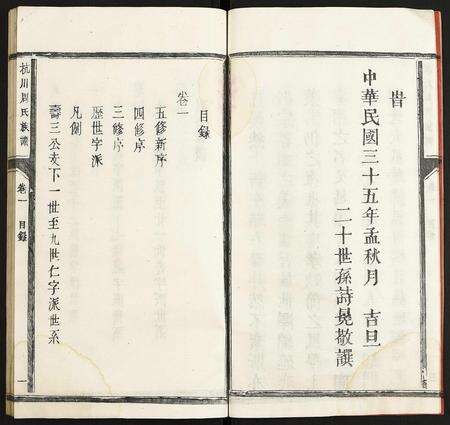 旹
中華民國三十五年孟秋月 吉旦
二十世孫詩晃敬譔
目錄
卷一
五修新序
四修序
三修序
歷世字派
凡例
壽三公支下一世至九世仁字派世系
杭川周氏族譜 卷一 目錄 一